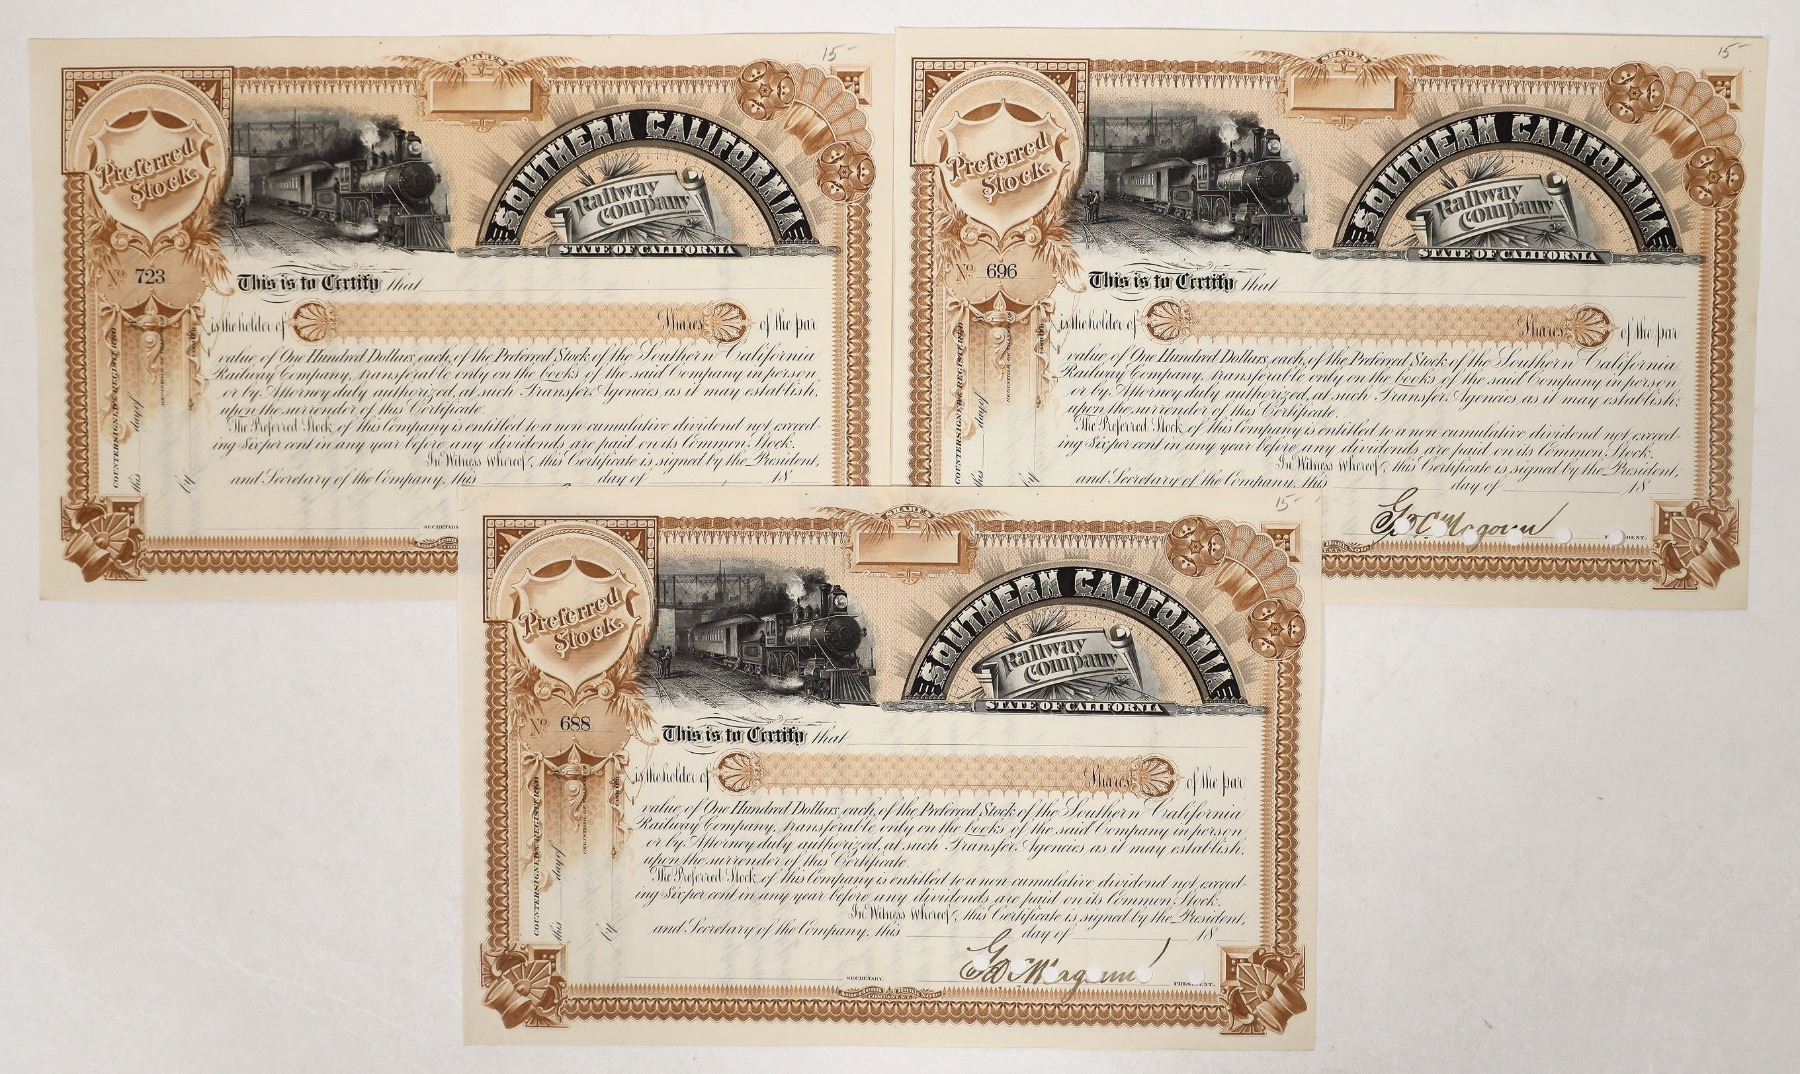 15-
SHARES
Preferred
Stock.
SOUTHERN CALIFORNIA
Railway
Company
STATE OF CALIFORNIA
No 723
This is to Certify that
is the holder of Shares of the par
value of One Hundred Dollars each, of the Preferred Stock of the Southern California
Railway Company, transferable only on the books of the said Company in person
or by Attorney duly authorized, at such Transfer Agencies as it may establish,
upon the surrender of this Certificate.
The Preferred Stock of this Company is entitled to a non cumulative dividend not exceed-
ing Six per cent in any year before any dividends are paid on its Common Stock.
In Witness whereof, this Certificate is signed by the President,
and Secretary of the Company, this day of 18
COUNTERSIGNED & REGISTERED
this day of
by
CASHIER
SECRETARY
15-
SHARES
Preferred
Stock.
SOUTHERN CALIFORNIA
Railway
Company
STATE OF CALIFORNIA
No 696
This is to Certify that
is the holder of Shares of the par
value of One Hundred Dollars each, of the Preferred Stock of the Southern California
Railway Company, transferable only on the books of the said Company in person
or by Attorney duly authorized, at such Transfer Agencies as it may establish,
upon the surrender of this Certificate.
The Preferred Stock of this Company is entitled to a non cumulative dividend not exceed-
ing Six per cent in any year before any dividends are paid on its Common Stock.
In Witness whereof, this Certificate is signed by the President,
and Secretary of the Company, this day of 18
COUNTERSIGNED & REGISTERED
this day of
by
CASHIER
15-
SHARES
Preferred
Stock.
SOUTHERN CALIFORNIA
Railway
Company
STATE OF CALIFORNIA
No 688
This is to Certify that
is the holder of Shares of the par
value of One Hundred Dollars each, of the Preferred Stock of the Southern California
Railway Company, transferable only on the books of the said Company in person
or by Attorney duly authorized, at such Transfer Agencies as it may establish,
upon the surrender of this Certificate.
The Preferred Stock of this Company is entitled to a non cumulative dividend not exceed-
ing Six per cent in any year before any dividends are paid on its Common Stock.
In Witness whereof, this Certificate is signed by the President,
and Secretary of the Company, this day of 18
COUNTERSIGNED & REGISTERED
this day of
by
CASHIER
SECRETARY.